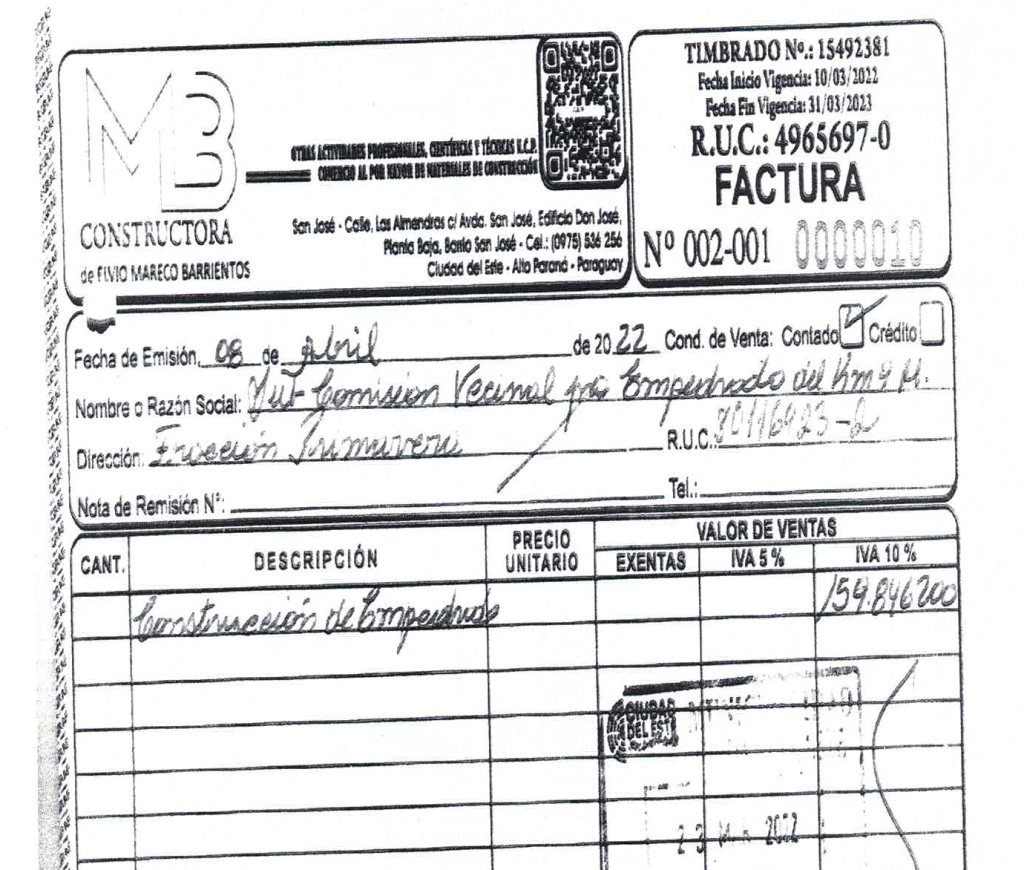 MB
CONSTRUCTORA
de ELVIO MARECO BARRIENTOS
OTRAS ACTIVIDADES PROFESIONALES, CIENTÍFICAS Y TÉCNICAS N.C.P.
COMERCIO AL POR MAYOR DE MATERIALES DE CONSTRUCCIÓN
San José - Calle, Los Almendros c/ Avda. San José, Edificio Don José,
Planta Baja, Barrio San José - Cel.: (0975) 536 256
Ciudad del Este - Alto Paraná - Paraguay
TIMBRADO Nº.: 15492381
Fecha Inicio Vigencia: 10/03/2022
Fecha Fin Vigencia: 31/03/2023
R.U.C.: 4965697-0
FACTURA
Nº 002-001 0000010
Fecha de Emisión, 08 de Abril de 2022 Cond. de Venta: Contado Crédito
Nombre o Razón Social: Sub-Comision Vecinal pro Empedrado del Km 9 M.
Dirección: Fracción Primavera R.U.C.: 80116923-2
Nota de Remisión N°: Tel.:
CANT. DESCRIPCIÓN PRECIO UNITARIO VALOR DE VENTAS
EXENTAS IVA 5 % IVA 10 %
Construcción de Empedrado 159.846200
CIUDAD
DEL ESTE
23 2022